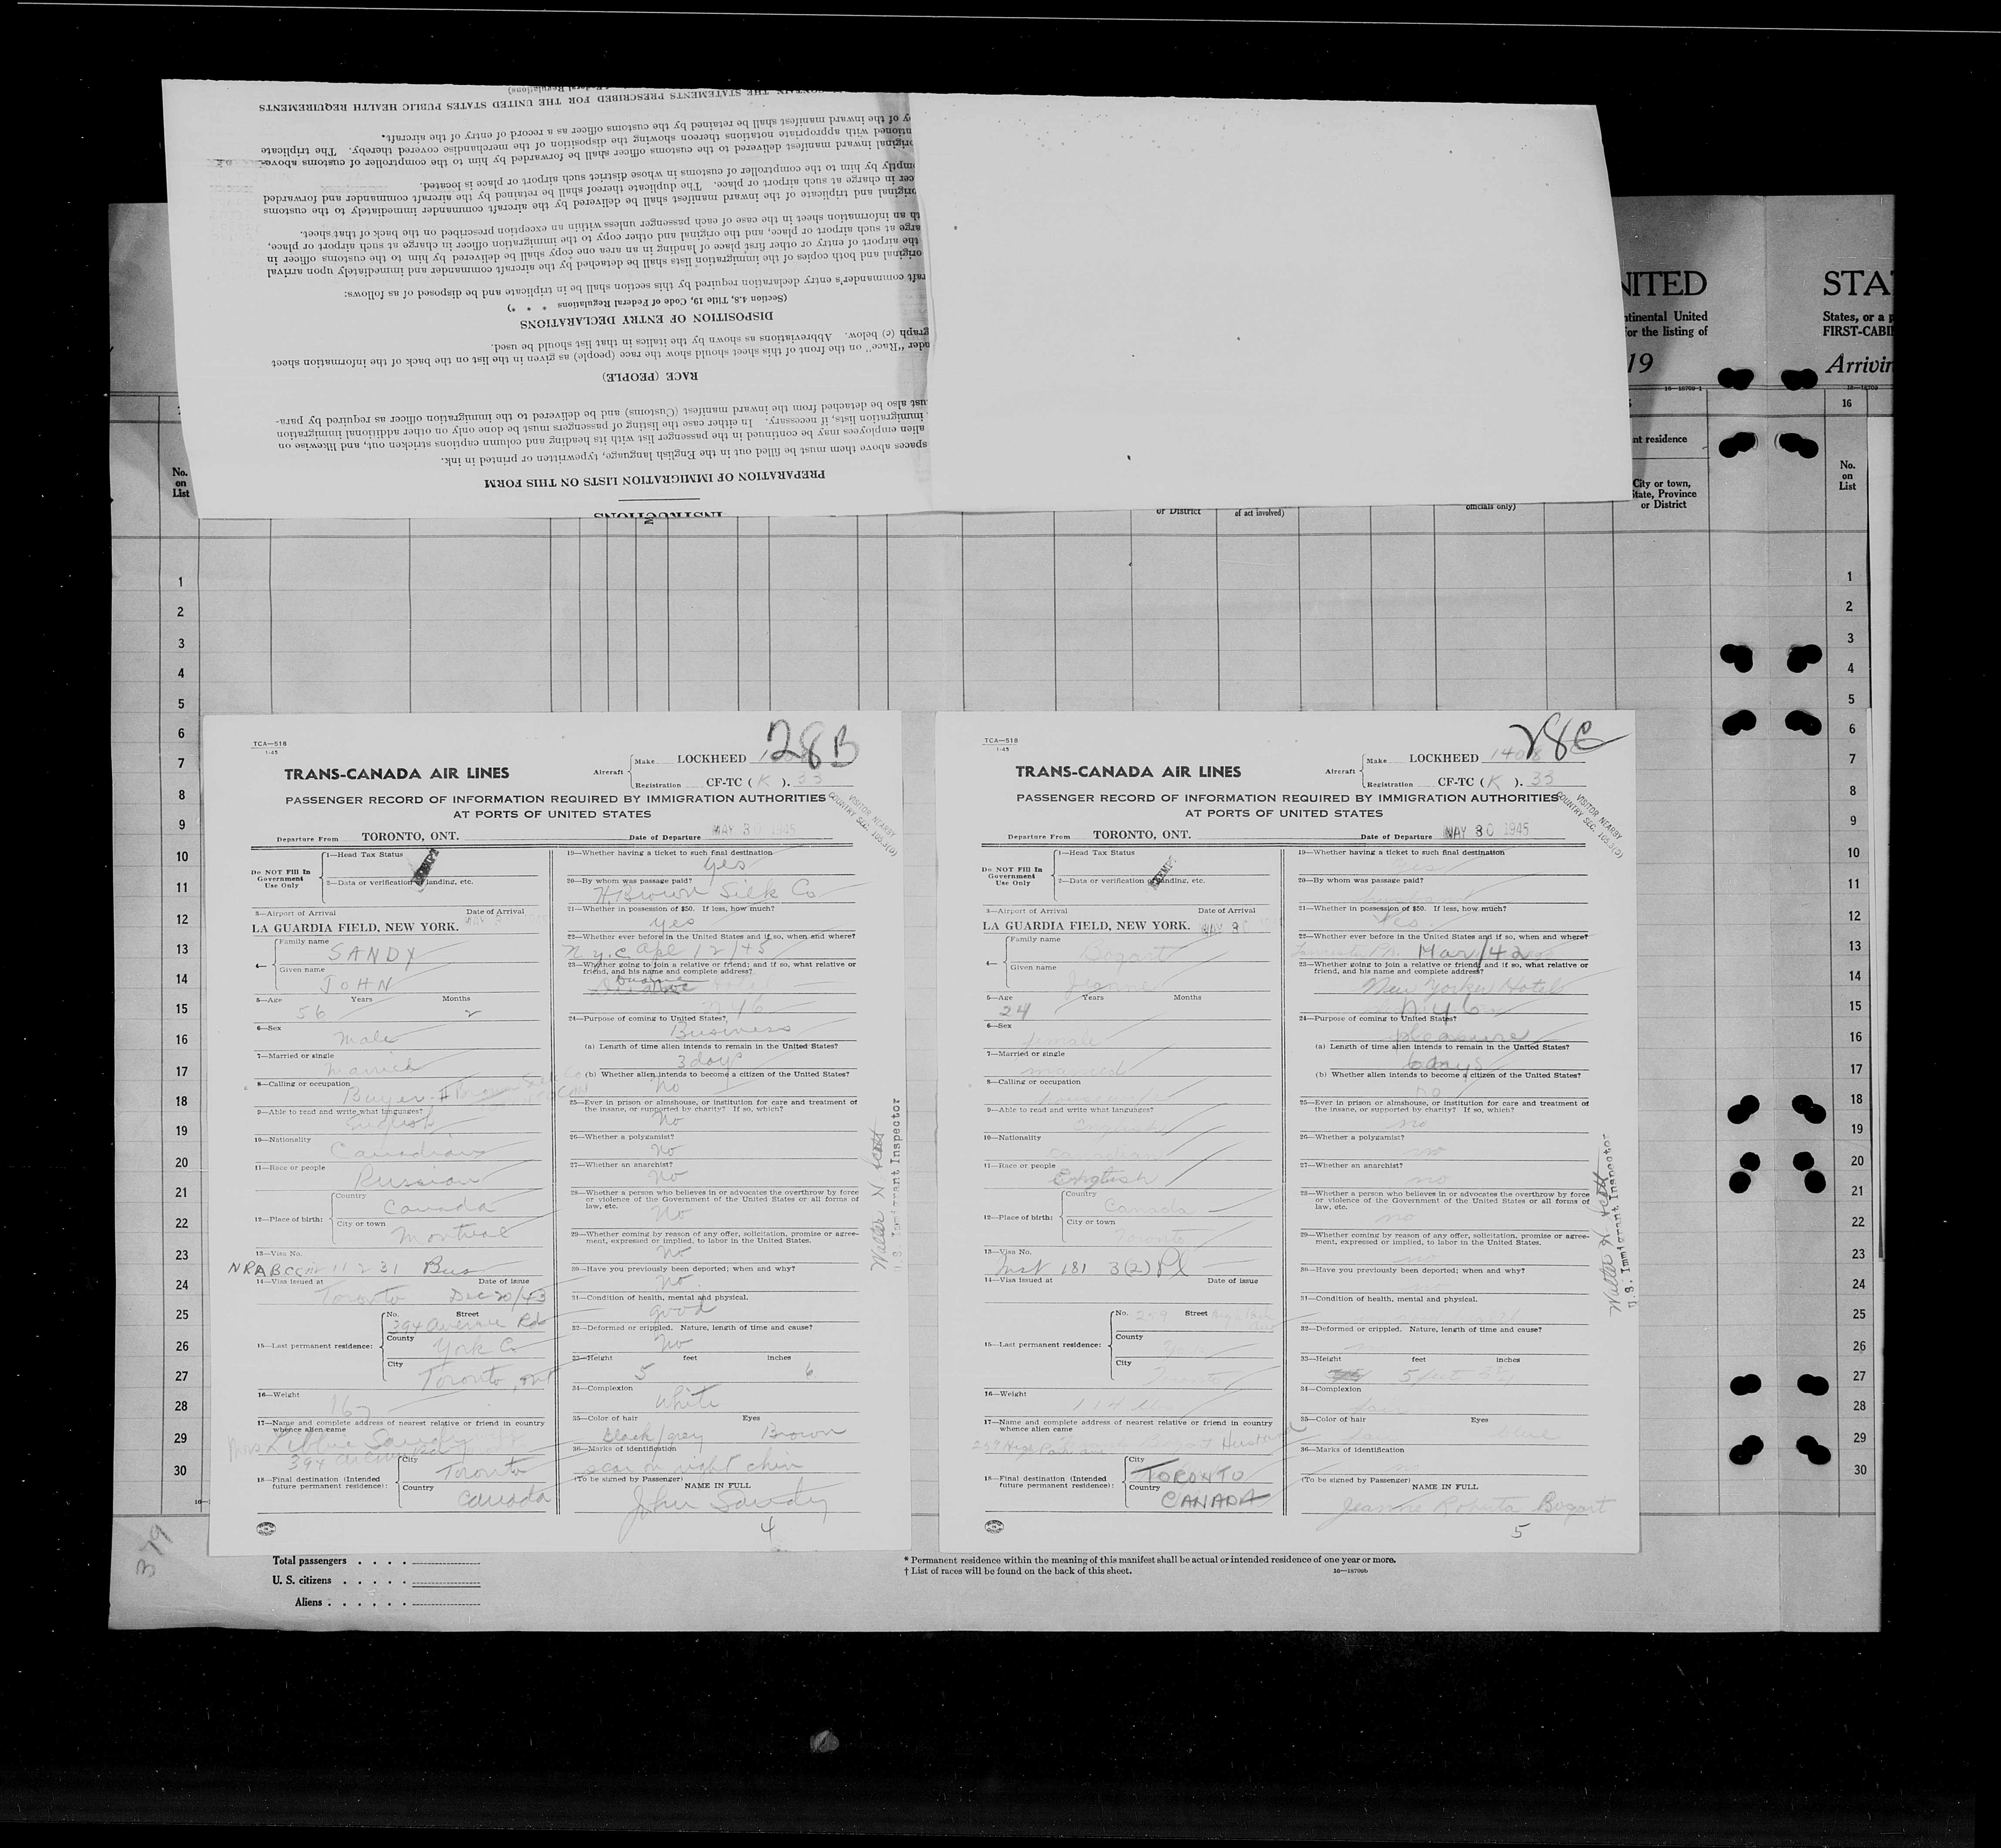 CONTAIN THE STATEMENTS PRESCRIBED FOR THE UNITED STATES PUBLIC HEALTH REQUIREMENTS
y of the inward manifest shall be retained by the customs officer as a record of entry of the aircraft.
ntioned with appropriate notations thereon showing the disposition of the merchandise covered thereby. The triplicate
original inward manifest delivered to the customs officer shall be forwarded by him to the comptroller of customs above-
mptly by him to the comptroller of customs in whose district such airport or place is located.
cer in charge at such airport or place. The duplicate thereof shall be retained by the aircraft commander and forwarded
original and triplicate of the inward manifest shall be delivered by the aircraft commander immediately to the customs
th an information sheet in the case of each passenger unless within an exception prescribed on the back of that sheet.
arge at such airport or place, and the original and other copy to the immigration officer in charge at such airport or place,
the airport of entry or other first place of landing in an area one copy shall be delivered by him to the customs officer in
original and both copies of the immigration lists shall be detached by the aircraft commander and immediately upon arrival
raft commander's entry declaration required by this section shall be in triplicate and be disposed of as follows:
(Section 4.8, Title 19, Code of Federal Regulations * * *)
DISPOSITION OF ENTRY DECLARATIONS
graph (c) below. Abbreviations as shown by the italics in that list should be used.
nder "Race" on the front of this sheet should show the race (people) as given in the list on the back of the information sheet
RACE (PEOPLE)
ust also be detached from the inward manifest (Customs) and be delivered to the immigration officer as required by para-
immigration lists, if necessary. In either case the listing of passengers must be done only on other additional immigration
alien employees may be continued in the passenger list with its heading and column captions stricken out, and likewise on
spaces above them must be filled out in the English language, typewritten or printed in ink.
PREPARATION OF IMMIGRATION LISTS ON THIS FORM
INSTRUCTIONS
NITED STA
ntinental United States, or a p
for the listing of FIRST-CABI
19 Arrivin
16—18709-1
16—18709
16
nt residence
City or town,
State, Province
or District
No.
on
List
No.
on
List
or District
of act involved)
officials only)
1
2
3
4
5
6
7
8
9
10
11
12
13
14
15
16
17
18
19
20
21
22
23
24
25
26
27
28
29
30
TCA—518
1-45
28B
TRANS-CANADA AIR LINES
Aircraft
Make LOCKHEED
Registration CF-TC ( K ). 33
PASSENGER RECORD OF INFORMATION REQUIRED BY IMMIGRATION AUTHORITIES
AT PORTS OF UNITED STATES
VISITOR NEARBY
COUNTRY SEC. 165.3(D)
Departure From TORONTO, ONT. Date of Departure MAY 30 1945
Do NOT Fill In
Government
Use Only
1—Head Tax Status
2—Data or verification of landing, etc.
3—Airport of Arrival Date of Arrival
LA GUARDIA FIELD, NEW YORK.
4— Family name SANDY
Given name JOHN
5—Age 56 Years 2 Months
6—Sex Male
7—Married or single Married
8—Calling or occupation Buyer
9—Able to read and write what languages? English
10—Nationality Canadian
11—Race or people Russian
12—Place of birth: Country Canada
City or town Montreal
13—Visa No. 11231 Bus
14—Visa issued at Toronto Date of issue Dec 20/43
15—Last permanent residence: No. Street 394 Avenue Rd
County York Co
City Toronto, Ont
16—Weight
17—Name and complete address of nearest relative or friend in country
whence alien came
Mrs Libbie Sandy
394 Avenue
18—Final destination (Intended
future permanent residence): City Toronto
Country Canada
19—Whether having a ticket to such final destination yes
20—By whom was passage paid? H. Brown Silk Co
21—Whether in possession of $50. If less, how much? yes
22—Whether ever before in the United States and if so, when and where?
N.Y.C. Apl 12/45
23—Whether going to join a relative or friend; and if so, what relative or
friend, and his name and complete address?
24—Purpose of coming to United States? Business
(a) Length of time alien intends to remain in the United States? 3 days
(b) Whether alien intends to become a citizen of the United States? No
25—Ever in prison or almshouse, or institution for care and treatment of
the insane, or supported by charity? If so, which? No
26—Whether a polygamist? No
27—Whether an anarchist? No
28—Whether a person who believes in or advocates the overthrow by force
or violence of the Government of the United States or all forms of
law, etc. No
29—Whether coming by reason of any offer, solicitation, promise or agree-
ment, expressed or implied, to labor in the United States. No
30—Have you previously been deported; when and why? No
31—Condition of health, mental and physical. good
32—Deformed or crippled. Nature, length of time and cause? No
33—Height 5 feet 6 inches
34—Complexion White
35—Color of hair black/grey Eyes Brown
36—Marks of identification scar on right chin
(To be signed by Passenger) NAME IN FULL
John Sandy
4
Walter H. Scott
U.S. Immigrant Inspector
TCA—518
1-45
28C
TRANS-CANADA AIR LINES
Aircraft
Make LOCKHEED 1408
Registration CF-TC ( K ). 33
PASSENGER RECORD OF INFORMATION REQUIRED BY IMMIGRATION AUTHORITIES
AT PORTS OF UNITED STATES
VISITOR NEARBY
COUNTRY SEC. 165.3(D)
Departure From TORONTO, ONT. Date of Departure MAY 30 1945
Do NOT Fill In
Government
Use Only
1—Head Tax Status
2—Data or verification of landing, etc.
3—Airport of Arrival Date of Arrival
LA GUARDIA FIELD, NEW YORK. MAY 30
4— Family name Bogart
Given name Jeanne
5—Age 24 Years Months
6—Sex female
7—Married or single married
8—Calling or occupation housewife
9—Able to read and write what languages? English
10—Nationality Canadian
11—Race or people English
12—Place of birth: Country Canada
City or town Toronto
13—Visa No. 181 3(2) Pl
14—Visa issued at Date of issue
15—Last permanent residence: No. 259 Street High Park Ave
County York
City Toronto
16—Weight 114 lbs
17—Name and complete address of nearest relative or friend in country
whence alien came
259 High Park Ave Bogart Husband
18—Final destination (Intended
future permanent residence): City TORONTO
Country CANADA
19—Whether having a ticket to such final destination
20—By whom was passage paid?
21—Whether in possession of $50. If less, how much?
22—Whether ever before in the United States and if so, when and where?
Mar/42
23—Whether going to join a relative or friend; and if so, what relative or
friend, and his name and complete address?
New Yorker Hotel
24—Purpose of coming to United States? pleasure
(a) Length of time alien intends to remain in the United States? 6 days
(b) Whether alien intends to become a citizen of the United States? no
25—Ever in prison or almshouse, or institution for care and treatment of
the insane, or supported by charity? If so, which? no
26—Whether a polygamist? no
27—Whether an anarchist? no
28—Whether a person who believes in or advocates the overthrow by force
or violence of the Government of the United States or all forms of
law, etc. no
29—Whether coming by reason of any offer, solicitation, promise or agree-
ment, expressed or implied, to labor in the United States. no
30—Have you previously been deported; when and why?
31—Condition of health, mental and physical.
32—Deformed or crippled. Nature, length of time and cause?
33—Height 5 feet inches
34—Complexion fair
35—Color of hair Eyes blue
36—Marks of identification no
(To be signed by Passenger) NAME IN FULL
Jeanne Roberta Bogart
5
Walter H. Scott
U.S. Immigrant Inspector
379
Total passengers . . . .
U. S. citizens . . . . .
Aliens . . . . . .
* Permanent residence within the meaning of this manifest shall be actual or intended residence of one year or more.
† List of races will be found on the back of this sheet.
16—18709b